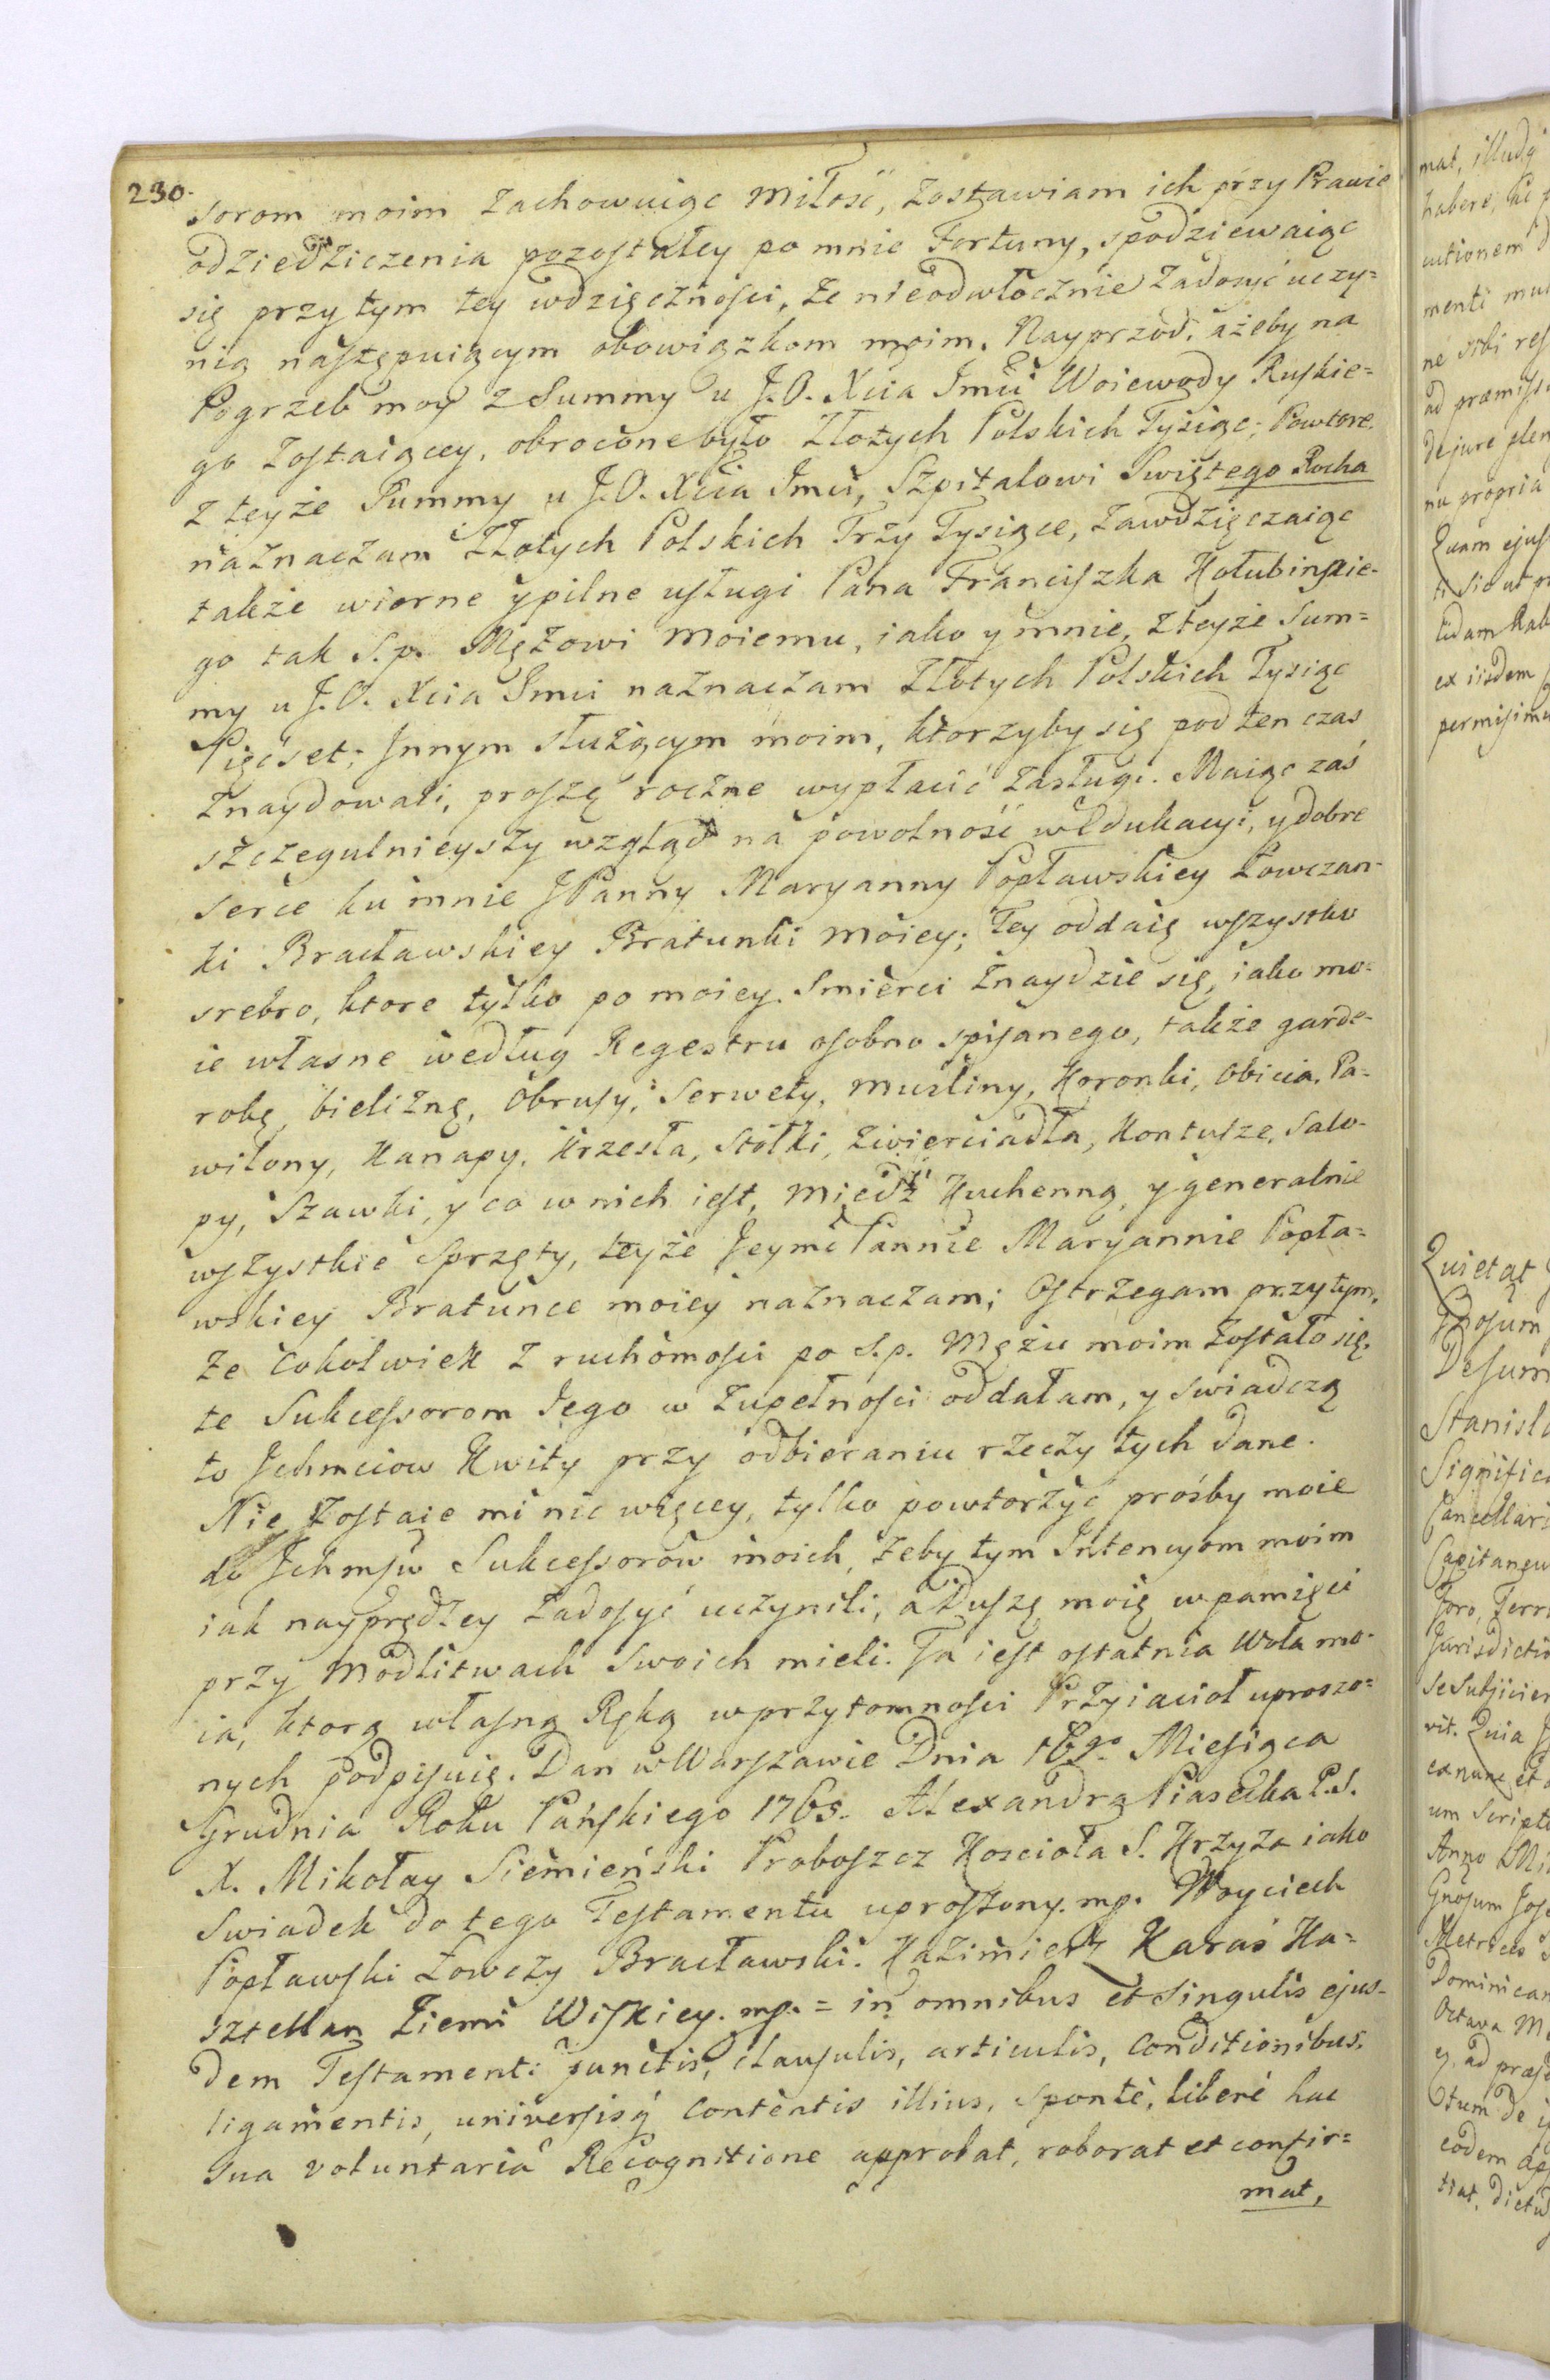 230.
sorom moim zachowuiąc miłość, zostawiam ich przy Prawie
odziedziczenia pozostałey po mnie Fortuny, spodziewaiąc
się przy tym tey wdzięczności, że nieodwłocznie zadosyć uczy=
nią następuiącym obowiązkom moim. Nayprzod, ażeby na
Pogrzeb moy z Summy u J. O. Xcia Jmci Woiewody Ruskie=
go zostaiącey, obrocone było Złotych Polskich Tysiąc; Powtore.
z teyże Summy u J. O. Xcia Jmci, Szpitalowi Swiętego Rocha
naznaczam Złotych Polskich Trzy Tysiące, zawdzięczaiąc
także wierne y pilne usługi Pana Franciszka Hołubinskie-
go tak S. p. Mężowi moiemu, iako y mnie, z teyże Sum=
my u J. O. Xcia Jmci naznaczam Złotych Polskich Tysiąc
Pięćset; Jnnym służącym moim, ktorzyby się pod ten czas
znaydowali, proszę roczne wypłacić zasługi. Maiąc zaś
szczegulnieyszy wzgląd na powolność w Edukacyi, y dobre
serce ku mnie JPanny Maryanny Popławskiey Łowczan-
ki Bracławskiey Bratunki moiey; Tey oddaię wszystko
srebro, ktore tylko po moiey Smierci znaydzie się, iako mo-
ie własne według Regestru osobno spisanego, także garde-
robę, bieliznę, Obrusy, Serwety, musliny, Koronki, Obicia, Pa-
wilony, Kanapy, Krzesła, Stołki, Zwierciadła, Kontusze, Salo-
py, Szawki, y co w nich iest, Miedź Kuchenną, y generalnie
wszystkie sprzęty, teyże Jeymć Pannie Maryannie Popła=
wskiey Bratunce moiey naznaczam; Ostrzegam przy tym,
że cokolwiek z ruchomosci po S. p. Mężu moim zostało się,
te Sukcessorom Jego w zupełnosci oddałam, y swiadczą
to Jchmciow Kwity przy odbieraniu rzeczy tych dane.
Nie zostaie mi nic więcey, tylko powtorzyć prośby moie
do Jchmsw Sukcessorow moich, żeby tym Intencyom moim
iak nayprędzey zadosyć uczynili, a Duszę moię w pamięci
przy modlitwach swoich mieli. Ta iest ostatnia Wola mo-
ia, ktorą własną Ręką w przytomnosci Przyiacioł uproszo=
nych podpisuię. Dan w Warszawie Dnia 16go Miesiąca
Grudnia Roku Pańskiego 1765. Alexandra Piasecka P. S.
X. Mikołay Siemieński Proboszcz Koscioła S. Krzyża iako
Swiadek do tego Testamentu uproszony. mp. Woyciech
Popławski Łowczy Bracławski. Kazimierz Karaś Ka=
sztellan Ziemi Wiskiey. mp. = in omnibus et singulis ejus-
dem Testamenti punctis, clausulis, articulis, conditionibus,
ligamentis, universisq contentis illius, sponte, liberé hac
sua voluntaria Recognitione approbat, roborat et confir=
mat,
mat, illudq
habere,
menti
ad praemiss
de jure
na propria
Quam ejus
ex iisdem
permisimu
Quietat
Gnosum
De sum
Stanisla
Significa
Cancellari
Capitaneu
foro, Terr
Jurisdictio
se subjicien
vit. Quia
ex nunc et
um Script
Anno
Gnosum Jos
Metrices
Dominican
Octava M
eodem